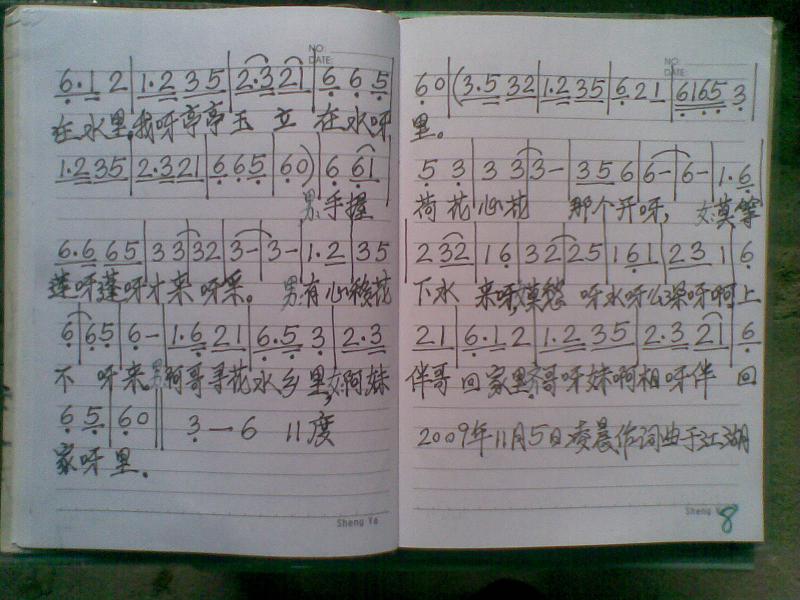 NO:
DATE:
6·1 2 | 1·2 3 5 | 2·3 21 | 6 6 5
在水里,我呀亭亭玉 立 在水呀
NO:
DATE:
6 0 | (3·5 32 | 1·2 35 | 6 2 1 | 6165 3 |
里。
1·2 35 | 2·3 21 | 6 6 5 | 6 0) | 6 61 |
男:手握
5 3 | 3 3 | 3 – | 3 5 6 | 6 – | 6 – | 1·6
荷花心花 那个开呀, 女:莫等
6·6 65 | 3 3 32 | 3 – | 3 – | 1·2 | 3 5
莲呀蓬呀才来呀采。 男:有心移花
2 32 | 1 6 | 3 2 | 2 5 | 1 6 1 | 2 3 1 | 6
下水 来呀,莫愁 呀水呀么深呀啊上
6 | 6 5 | 6 – | 1·6 21 | 6·5 3 | 2·3
不 呀来,男:阿哥寻花水乡里,女:阿妹
2 1 | 6·1 2 | 1·2 35 | 2·3 21 | 6
伴哥回家里齐:哥呀妹啊相呀伴 回
6 5 | 6 0 || 3 — 6 11度
家呀里。
2009年11月5日凌晨作词曲于江湖
Sheng Ya
Sheng
8